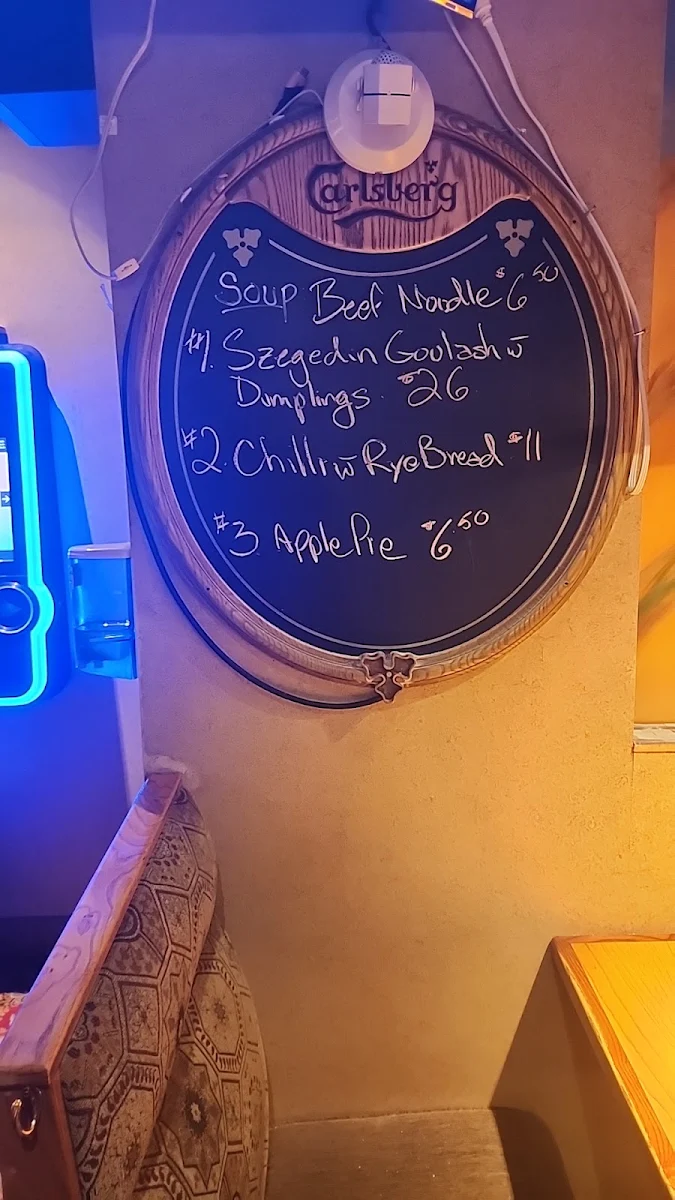 Carlsberg
Soup Beef Noodle $6 50
#1. Szegedin Goulash w̅
Dumplings. $26
#2. Chilli w̅ Rye Bread $11
#3 Apple Pie $6.50